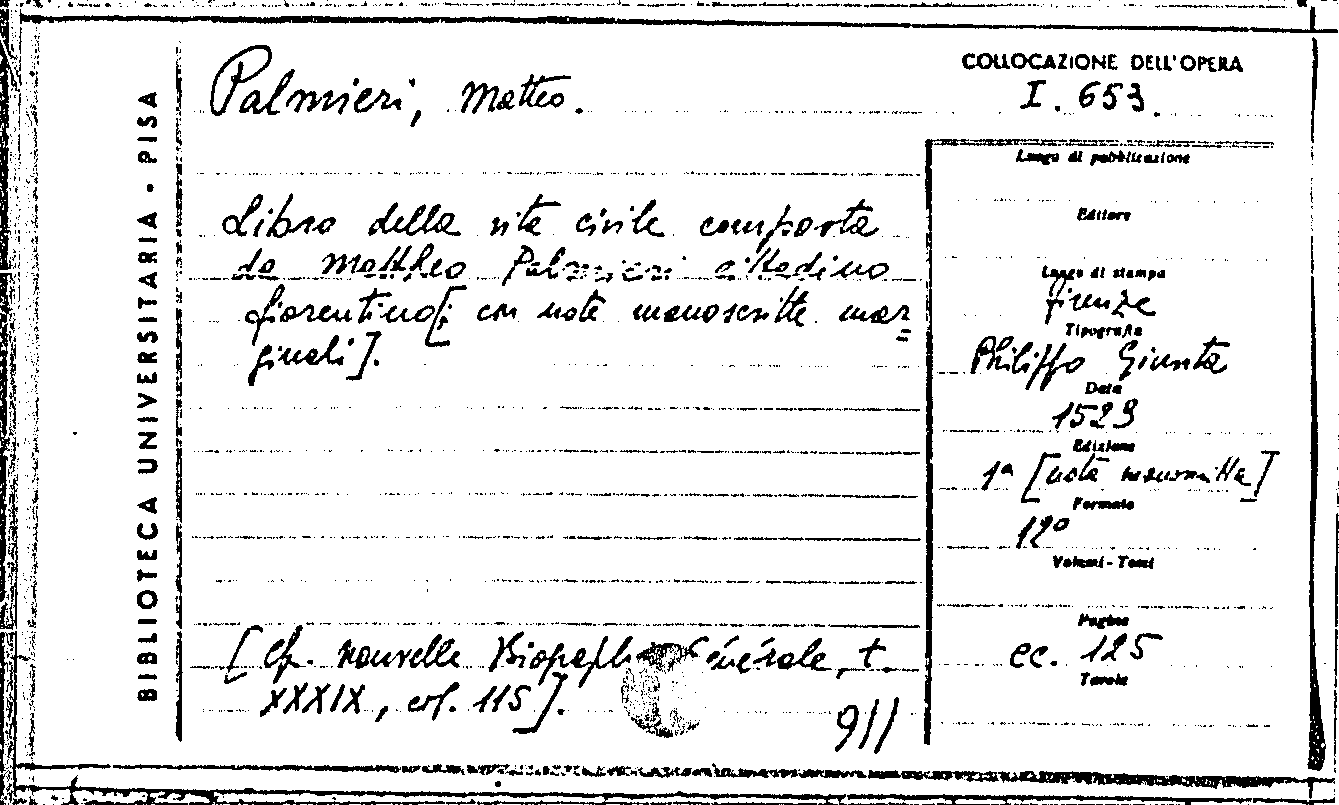 BIBLIOTECA UNIVERSITARIA - PISA
Palmieri, Matteo.
COLLOCAZIONE DELL'OPERA
I. 653.
Libro della vita civile composta
da Mattheo Palmieri cittadino
fiorentino[; con note manoscritte mar=
ginali].
[Cfr. Nouvelle Biographie Générale, t.
XXXIX, col. 115].
911
Luogo di pubblicazione
Editore
Luogo di stampa
Firenze
Tipografia
Philippo Giunta
Data
1529
Edizione
1ª [nota manoscritta]
Formato
12º
Volumi - Tomi
Pagine
cc. 125
Tavole